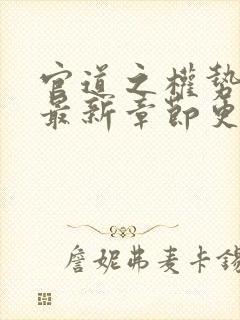 官道之權勢
最新章節更
詹妮弗麦卡錫